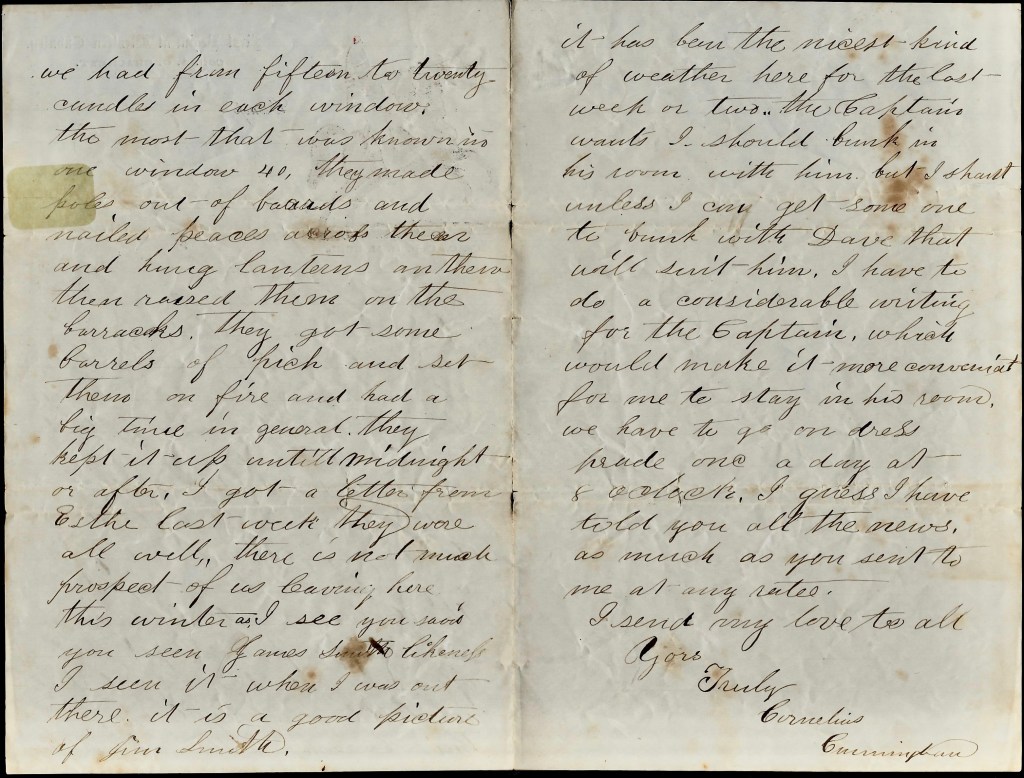 we had from fifteen to twenty
candles in each window.
the most that was known in
one window 40, they made
poles out of boards and
nailed peaces across them
and hung lanterns on them
then raised them on the
barracks. they got some
barrels of pich and set
them on fire and had a
big time in general. they
kept it up untill midnight
or after. I got a letter from
Esthe last week they wore
all well,, there is not much
prospect of us leaving here
this winter as I see you said
you seen James Smith likeness
I seen it when I was out
there. it is a good picture
of Jim Smith.
it has ben the nicest kind
of weather here for the last
week or two.. the Captain
wants I should bunk in
his room with him. but I shant
unless I can get some one
to bunk with Dave that
will suit him. I have to
do a considerable writing
for the Captain, which
would make it more convenient
for me to stay in his room.
we have to go on dress
prade one a day at
8 oclock. I guess I have
told you all the news.
as much as you sent to
me at any rate.
I send my love to all
Yors
Truly
Cornelius
Cunningham